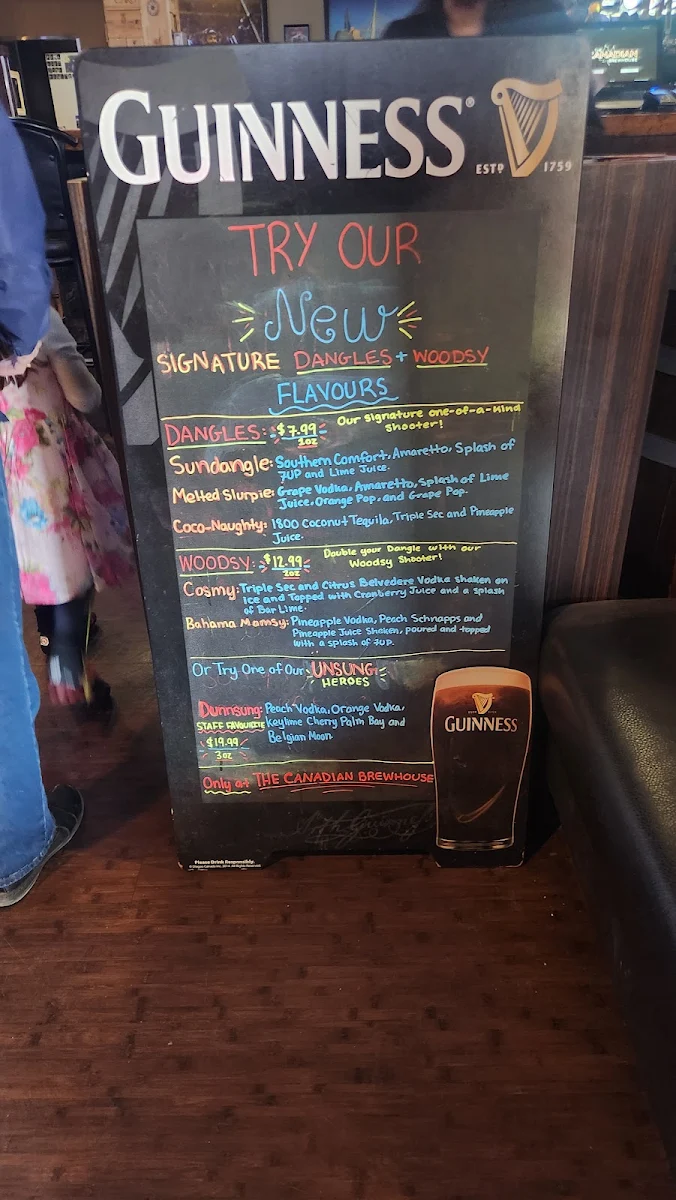 GUINNESS®
ESTD 1759
TRY OUR
New
SIGNATURE DANGLES + WOODSY
FLAVOURS
DANGLES: $7.99 Our signature one-of-a-kind
1oz shooter!
Sundangle: Southern Comfort, Amaretto, Splash of
7UP and Lime Juice.
Melted Slurpie: Grape Vodka, Amaretto, Splash of Lime
Juice, Orange Pop, and Grape Pop.
Coco-Naughty: 1800 Coconut Tequila, Triple Sec and Pineapple
Juice.
WOODSY: $12.99 Double your Dangle with our
2oz Woodsy Shooter!
Cosmy: Triple Sec and Citrus Belvedere Vodka shaken on
ice and Topped with Cranberry Juice and a splash
of Bar Lime.
Bahama Momsy: Pineapple Vodka, Peach Schnapps and
Pineapple Juice Shaken, poured and topped
with a splash of 7UP.
Or Try One of Our UNSUNG
HEROES
Durnsung: Peach Vodka, Orange Vodka,
STAFF FAVOURITE Keylime Cherry Palm Bay and
Belgian Moon.
$19.99
3oz
Only at THE CANADIAN BREWHOUSE
GUINNESS
Please Drink Responsibly.